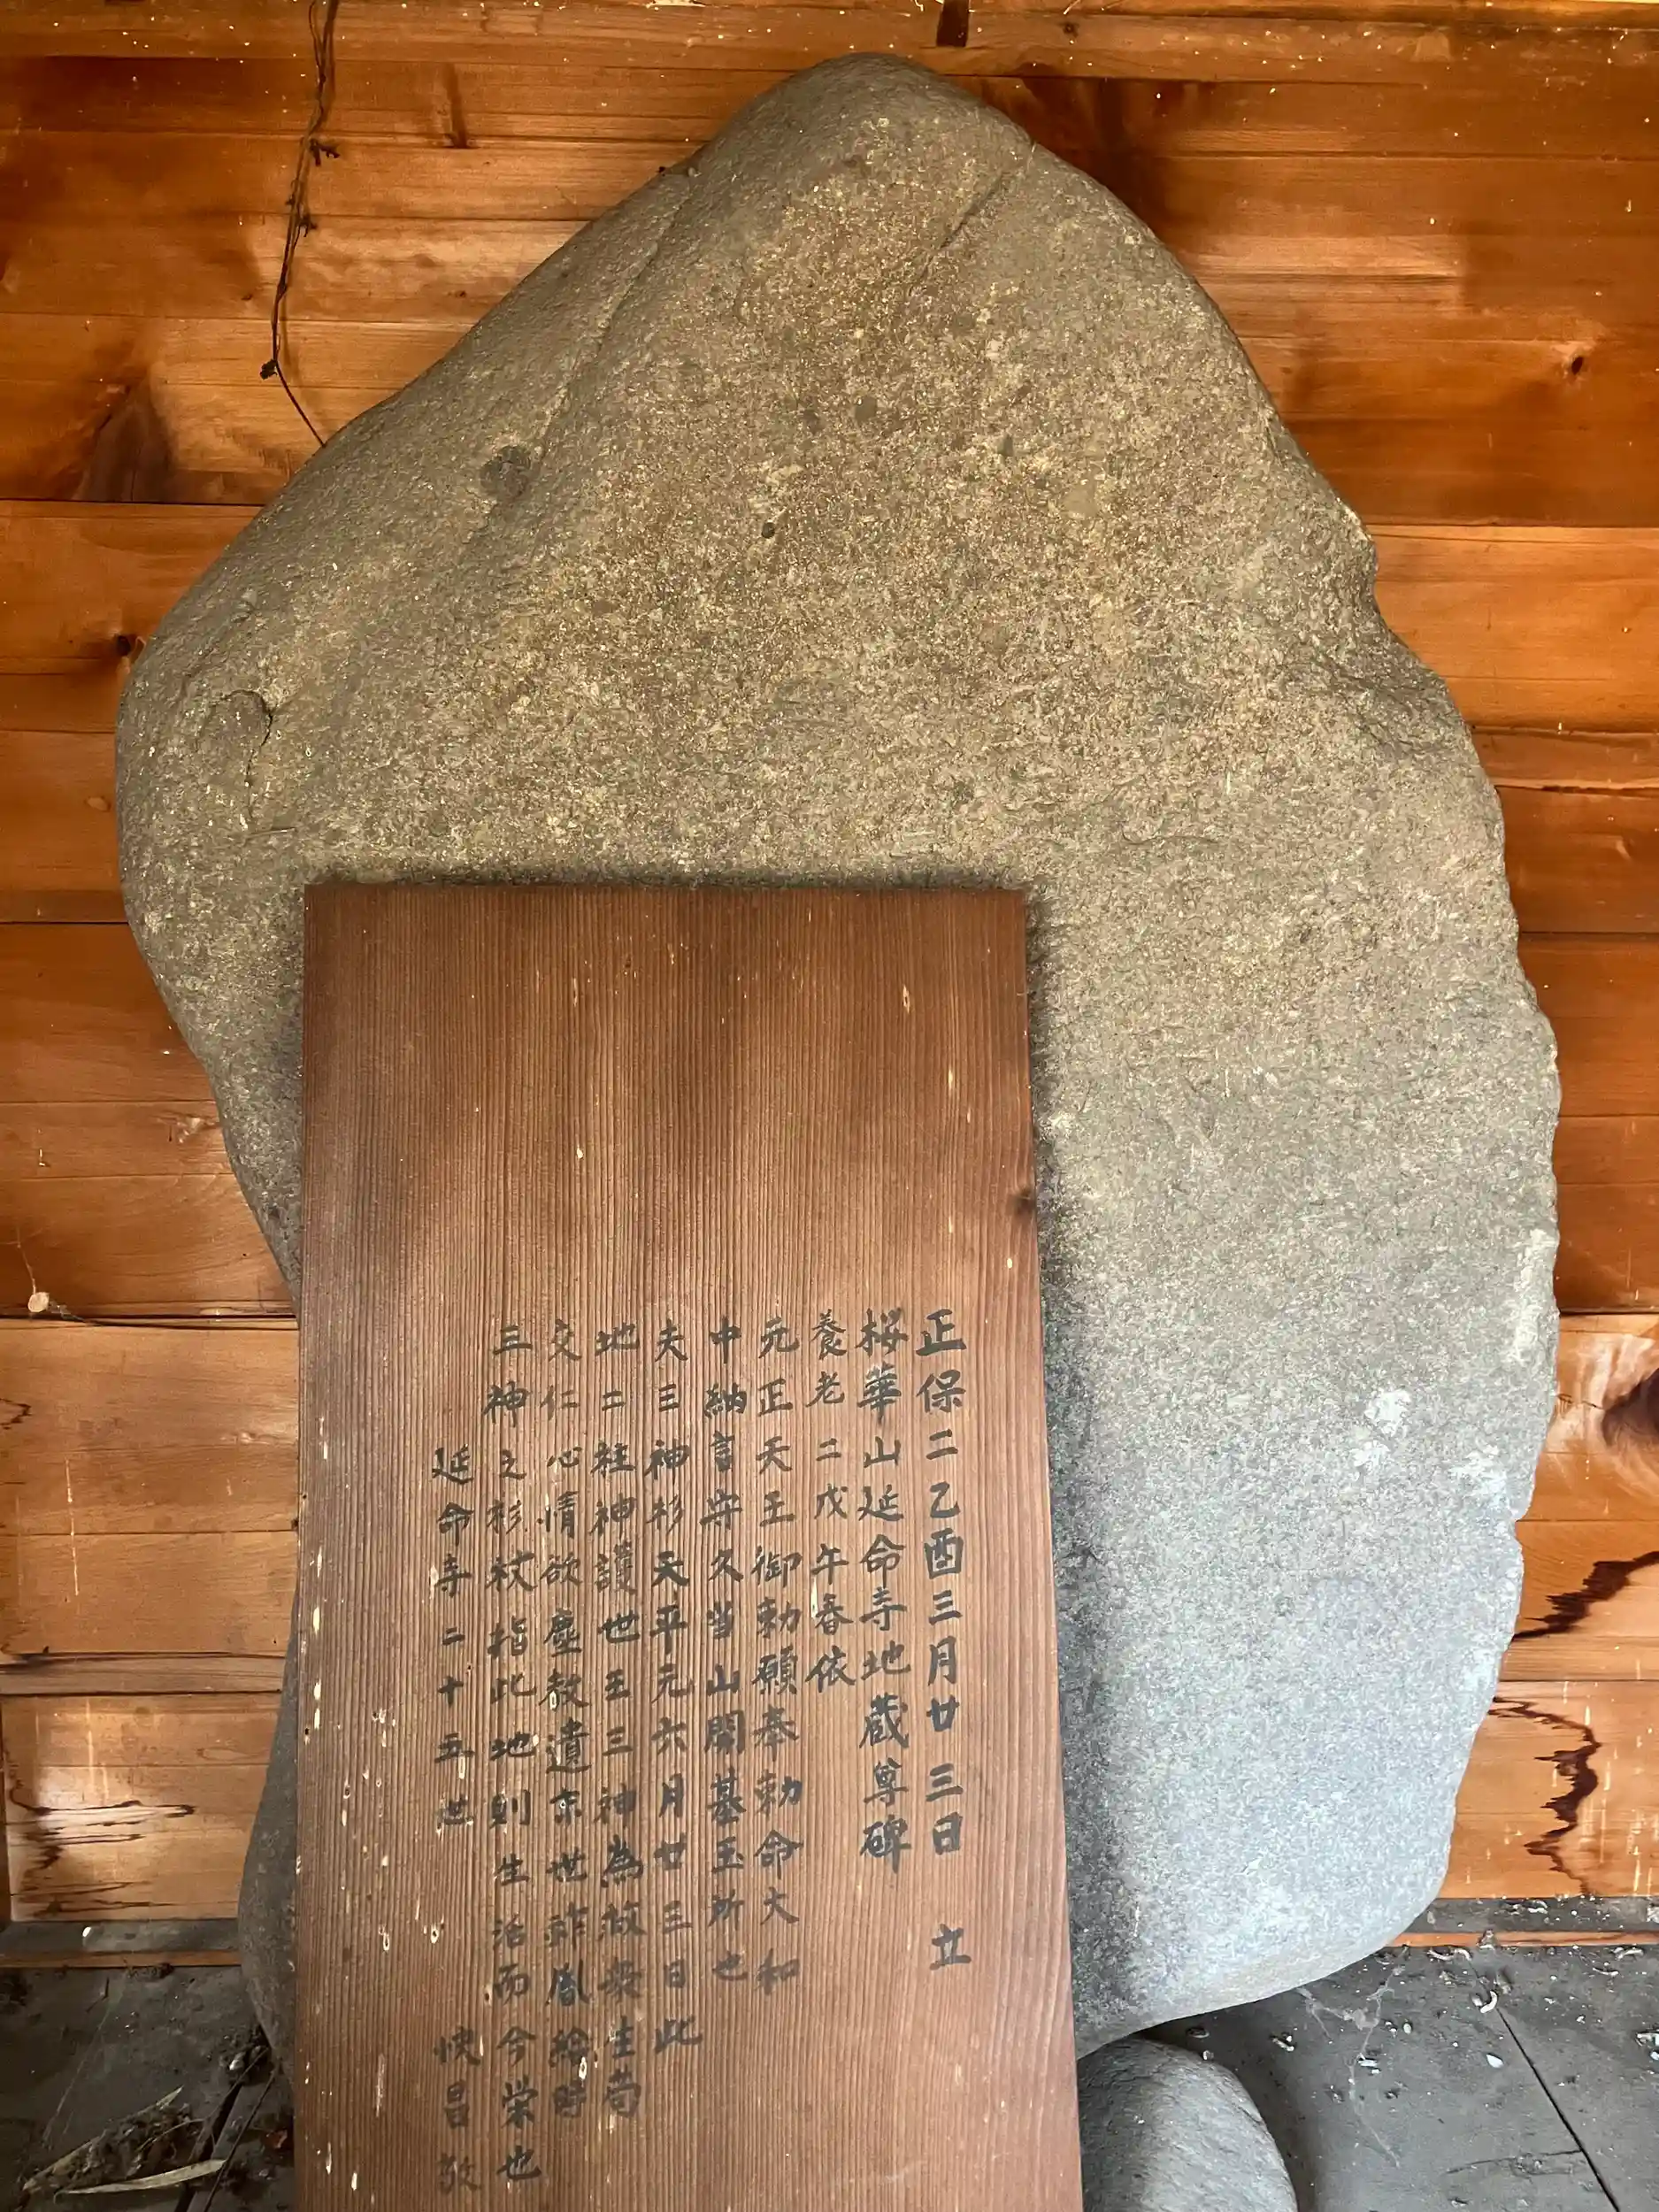 正保二乙酉三月廿三日 立
桜華山延命寺地蔵尊碑
養老二戊午春依
元正天王御勅願奉勅命大和
中納言守久当山開基玉所也
夫三神杉天平元六月廿三日此
地二柱神護世王三神為故衆生苟
交仁心情欲塵殺遺京世 給時
三神之杉杖指此地則生活而今栄也
延命寺二十五世 快昌敬